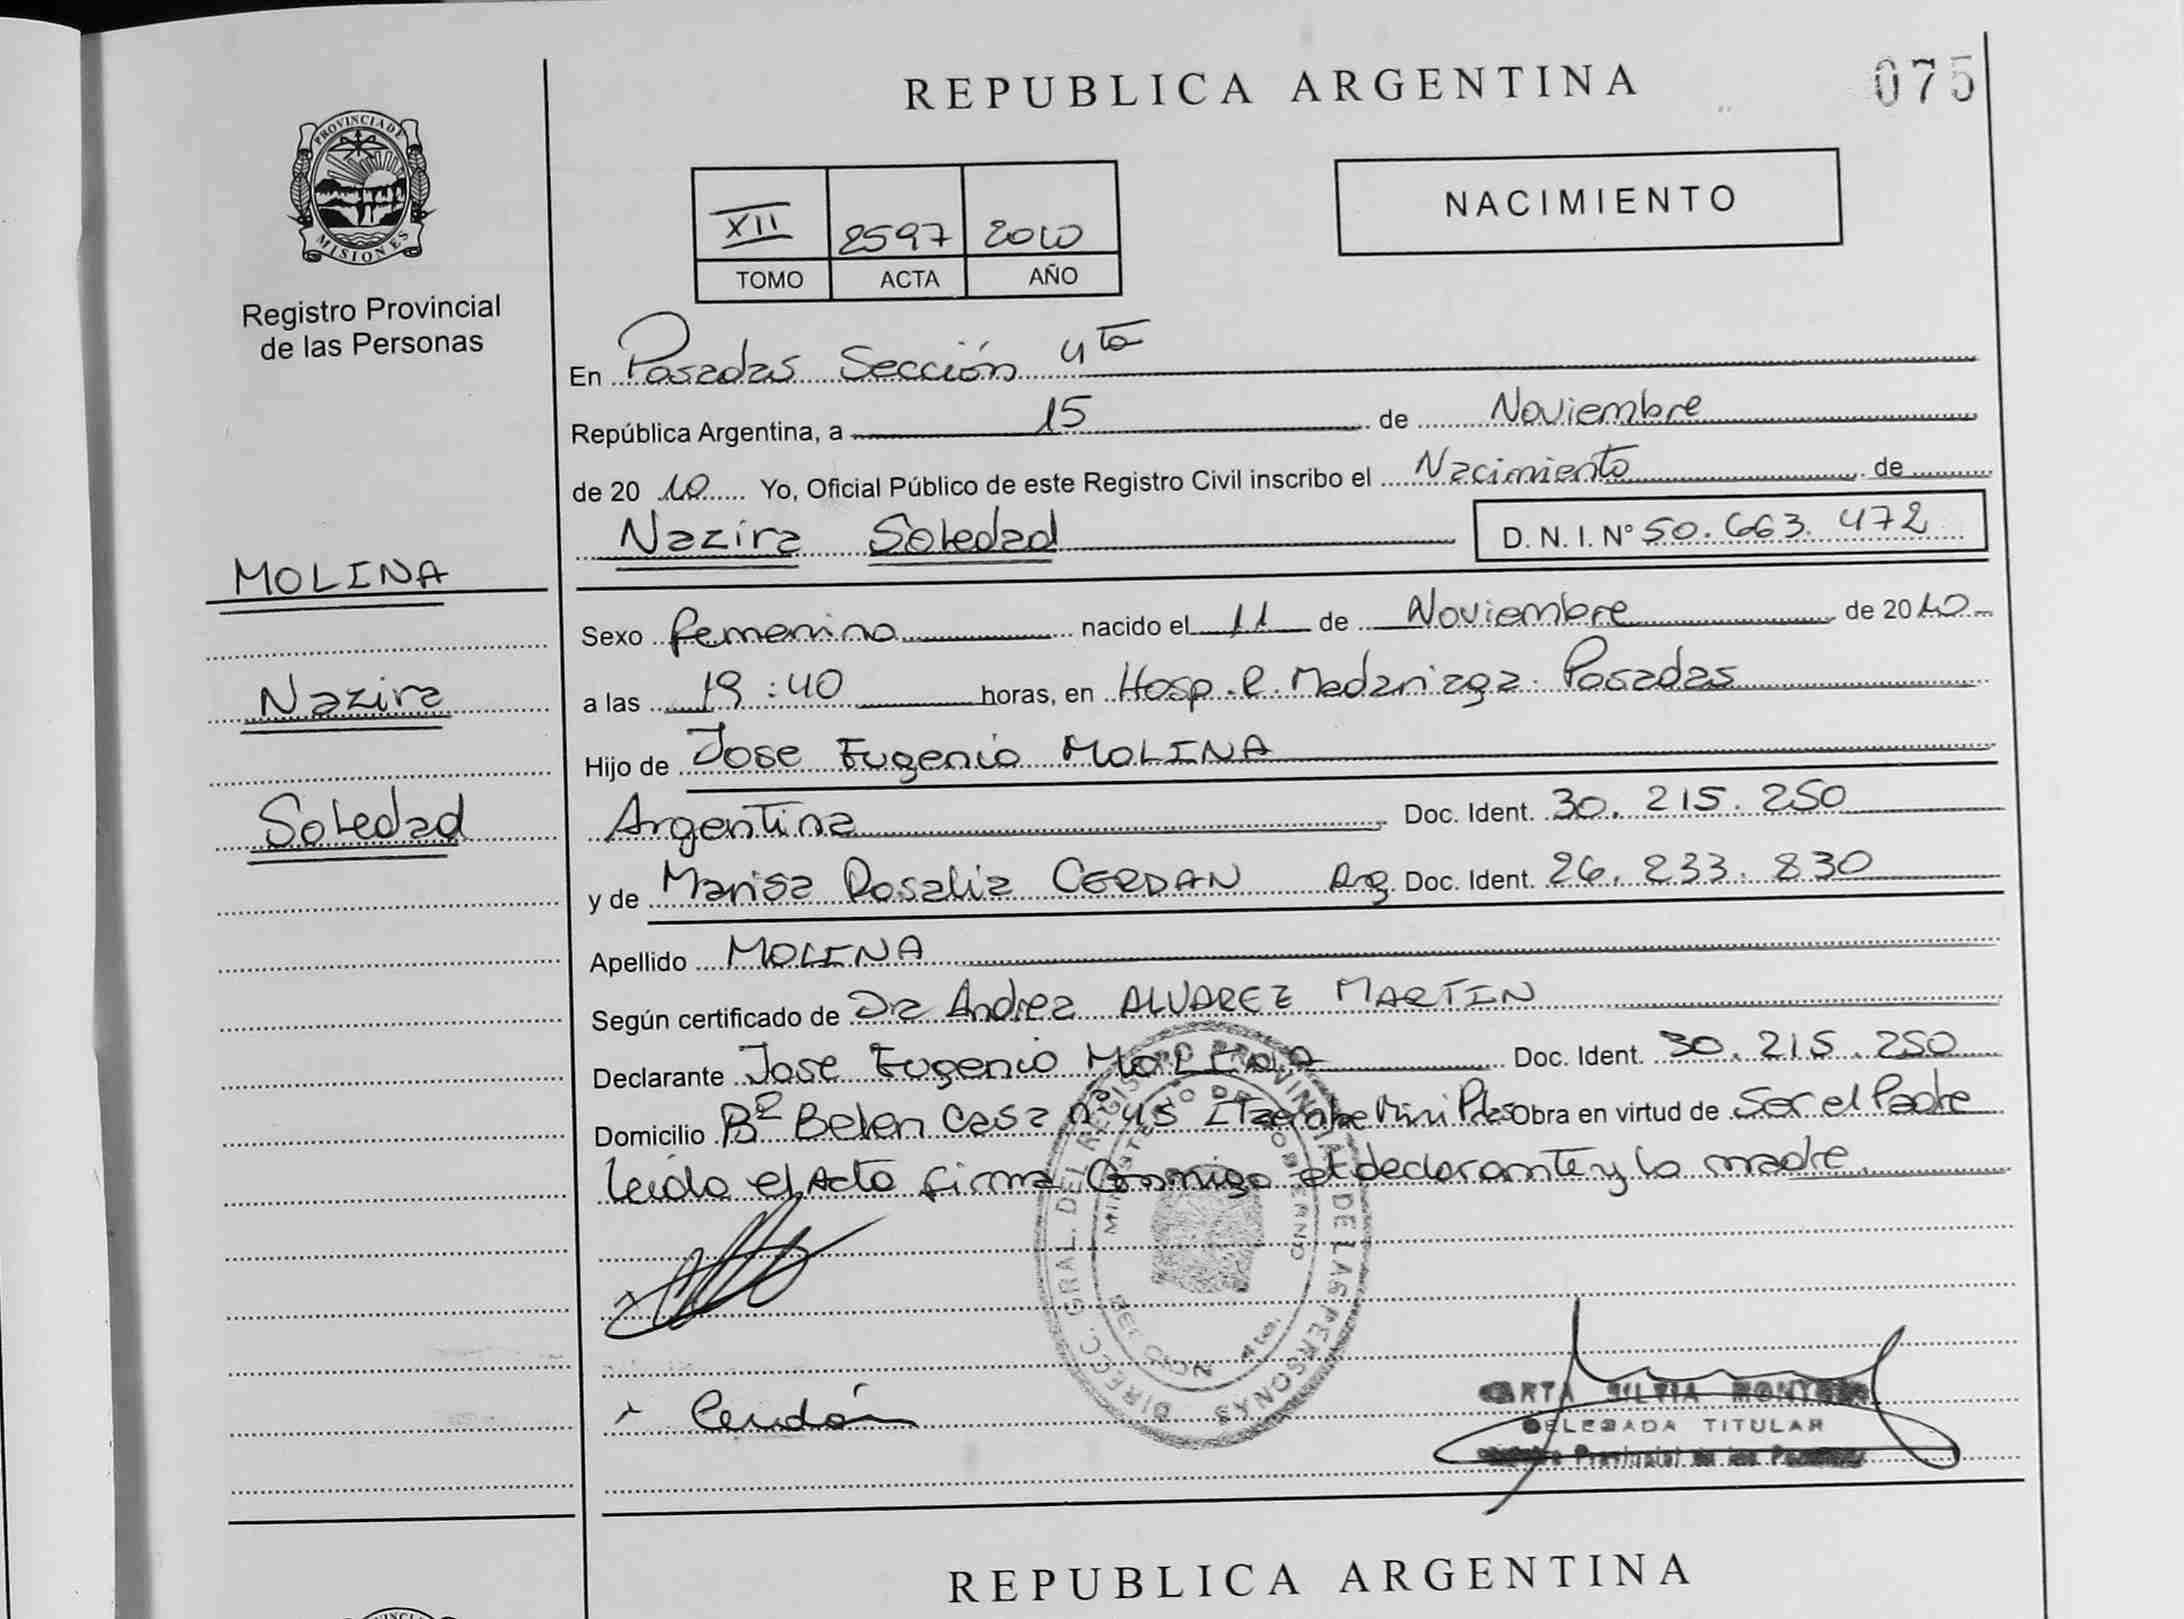 REPUBLICA ARGENTINA
075
PROVINCIA DE
MISIONES
Registro Provincial
de las Personas
XII 2597 2010
TOMO ACTA AÑO
NACIMIENTO
En Posadas Sección 4ta
República Argentina, a 15 de Noviembre
de 2010 Yo, Oficial Público de este Registro Civil inscribo el Nacimiento de
Nazira Soledad D. N. I. Nº 50.663.472
MOLINA
Nazira
Soledad
Sexo femenino nacido el 11 de Noviembre de 2010
a las 19:40 horas, en Hosp. R. Madariaga Posadas
Hijo de Jose Eugenio MOLINA
Argentina Doc. Ident. 30.215.250
y de Marisa Rosalia CERDAN Arg Doc. Ident. 26.233.830
Apellido MOLINA
Según certificado de Dra Andrea ALVAREZ MARTIN
Declarante Jose Eugenio MOLINA Doc. Ident. 30.215.250
Domicilio Bº Belen Casa nº 45 Itaembe Mini Pdas Obra en virtud de Ser el Padre
Leido el Acto firma Conmigo el declarante y la madre.
DIRECC. GRAL. DEL REGISTRO PROVINCIAL DE LAS PERSONAS
MINISTERIO DE GOBIERNO
Cerdán
SILVIA
DELEGADA TITULAR
Provincial de las Personas
REPUBLICA ARGENTINA